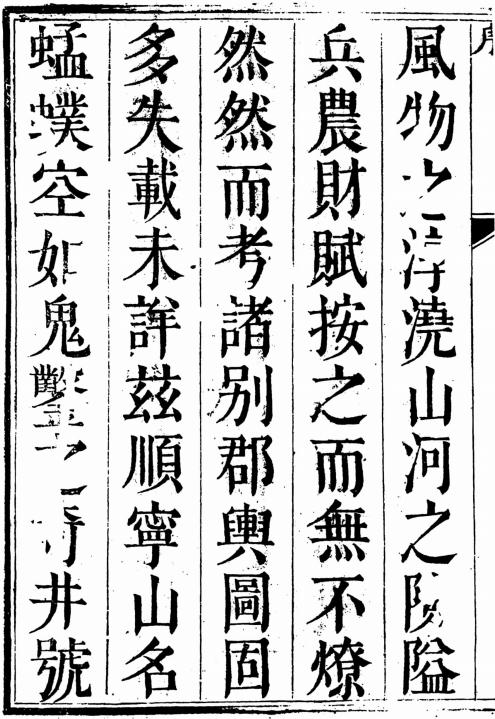 序
風物之淳澆山河之險隘
兵農財賦按之而無不燎
然然而考諸别郡輿圖固
多失載未詳茲順寧山名
蜢䗱空如鬼鑿之奇井號